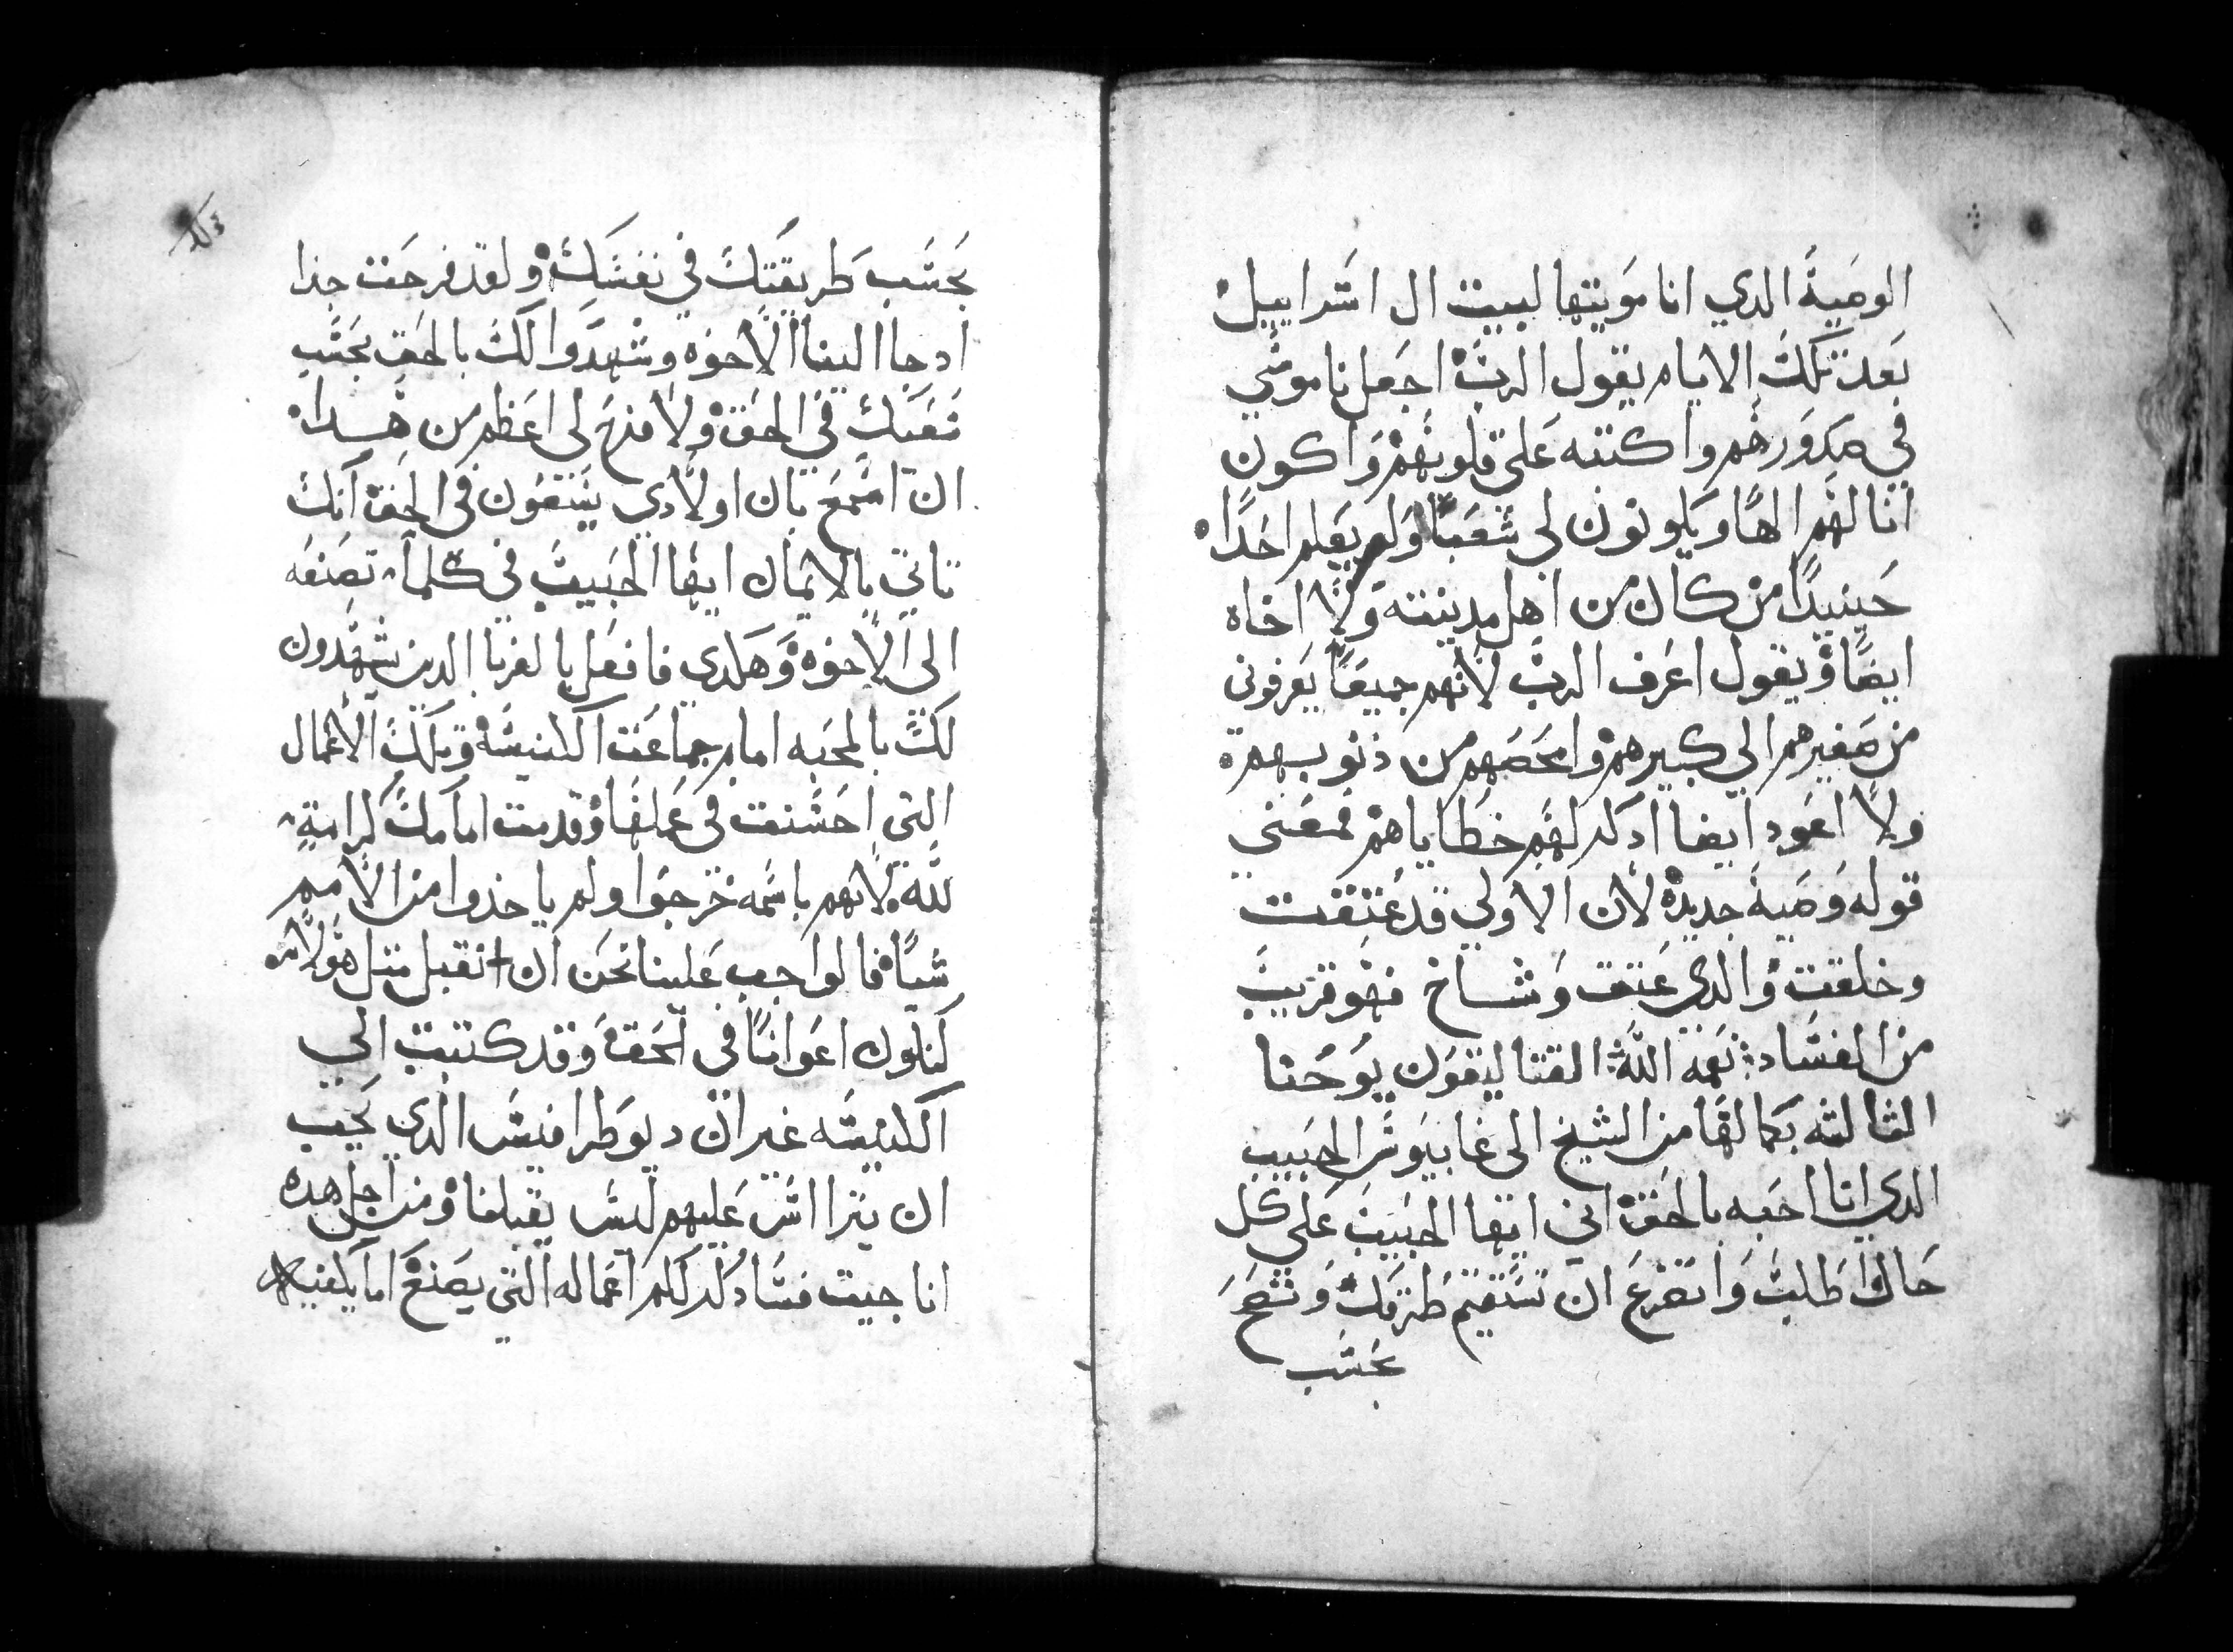 الوصية الدي انا موتيها لبيت ال اسراييل
بعد تلك الايام يقول الرب اجعل ناموسي
في صدورهم واكتبه على قلوبهم واكون
انا لهم الها ويكونون لي شعبا ولم يعلم احدا
حينيدا من كان من اهل مدينته ولا اخاه
ايضا ويقول اعرف الرب لانهم جميعا يعرفوني
من صغيرهم الي كبيرهم وامحصهم من ذنوبهم
ولا اعود ايضا ادكر لهم خطاياهم فمعني
قوله وصية جديده لان الاولي قد عتقت
وخلقت والدي عتق وشاخ فهو قريب
من الفساد نعمه الله القتاليقون يوحنا
الثالثه بكمالها من الشيخ الى غاييوس الحبيب
الدي انا احبه بالحق اني ايها الحبيب على كل
حال اطلب واتضرع ان تستقيم طرقك وتصح
بحسب
بحسب طريقتك في نفسك ولقد فرحت جدا
ادجا الينا الاخوه وشهدوا لك بالحق بحسب
تعبك في الحق ولا فرح لي اعظم من هدا
ان اسمع بان اولادي يسعون في الحق انك
تاتي بالايمان ايها الحبيب في كلما تصنعه
الي الاخوه وهكدي فافعل بالغربا الدين شهدون
لك بالمحبه امام جماعت الكنيسه وتلك الاعمال
التي احسنت في عملها وقدمت امامك كرامة
لله لانهم باسمه خرجوا ولم ياخدوا من الامم
شيا فالواجب علينا نحن ان نقبل متل هولاء
لنكون اعوانا في الحق وقد كتبت الي
الكنيسه غير ان ديوطرافيس الدي يحب
ان يتراس عليهم ليس يقبلنا ومن اجل هده
انا جيت فساذكر لكم اعماله التي يصنع اما يكفيه